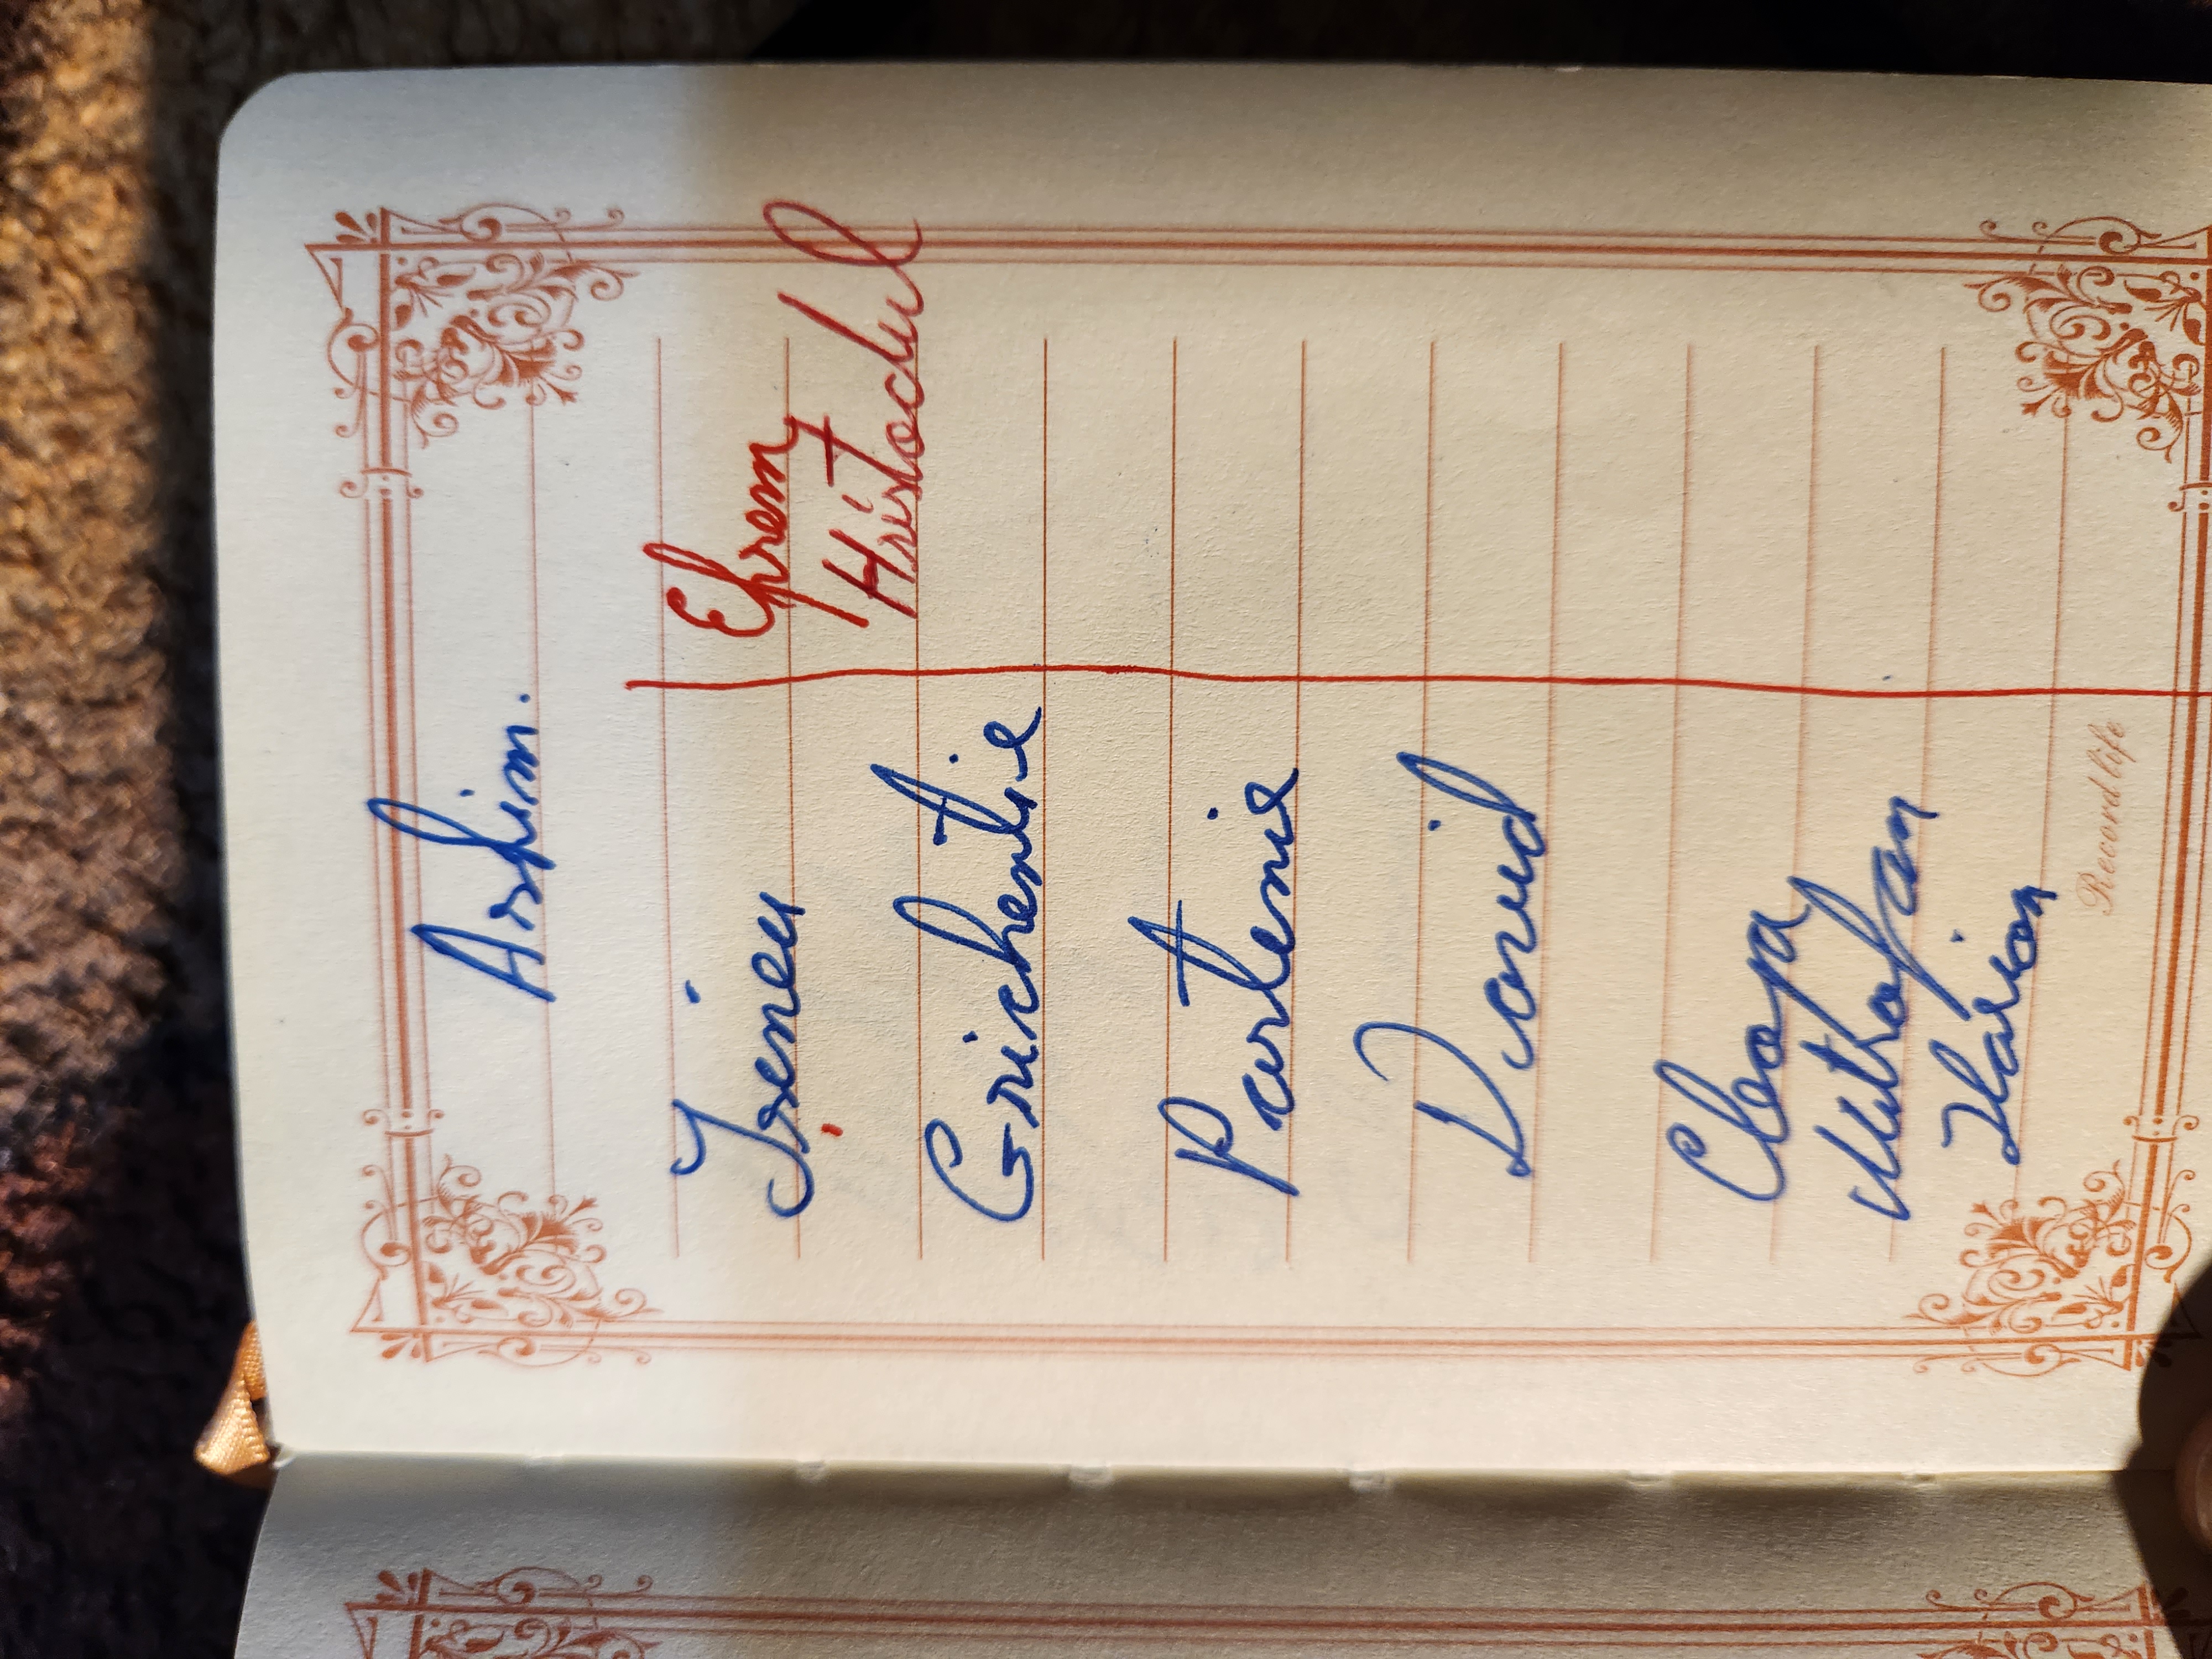 Arhim.
Irineu
Grichentie
Partenie
David
Cleopa
Mitrofan
Ilarion
Efrem
Hristodul
Record life